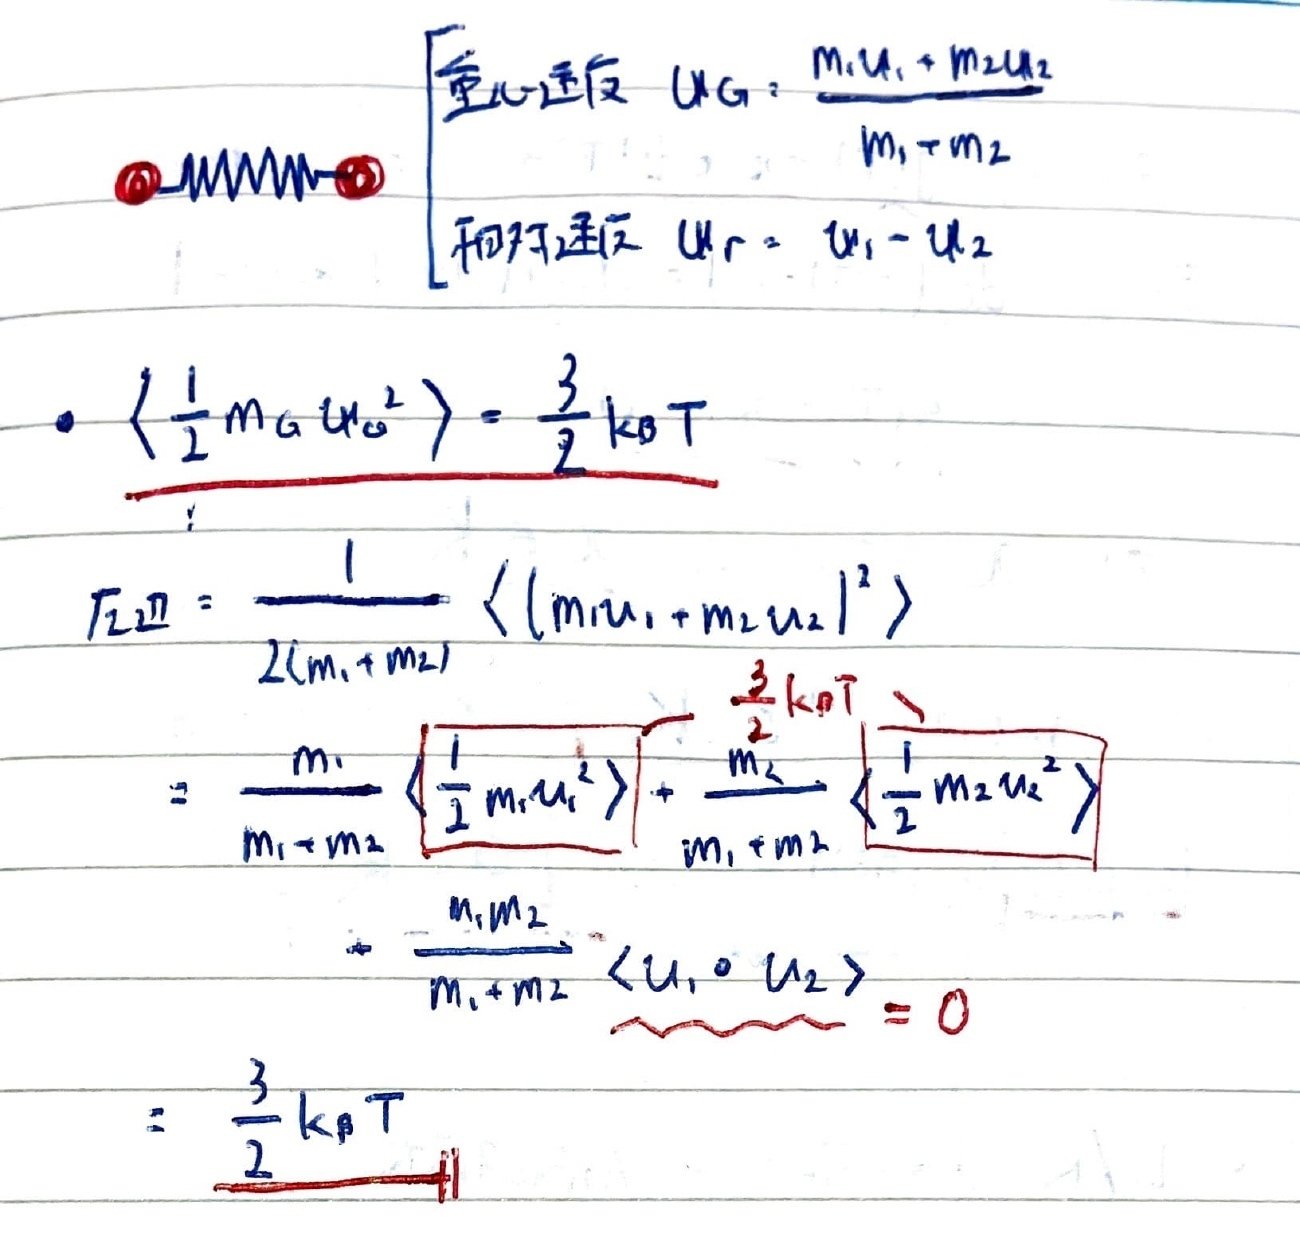 重心速度 u_G = (m₁u₁ + m₂u₂)/(m₁ + m₂)
相対速度 u_r = u₁ - u₂
• ⟨1/2 m_G u_G²⟩ = 3/2 k_B T
∵
左辺 = 1/(2(m₁ + m₂)) ⟨|m₁u₁ + m₂u₂|²⟩
3/2 k_B T
= m₁/(m₁ + m₂) ⟨1/2 m₁u₁²⟩ + m₂/(m₁ + m₂) ⟨1/2 m₂u₂²⟩
+ m₁m₂/(m₁ + m₂) ⟨u₁ • u₂⟩ = 0
= 3/2 k_B T